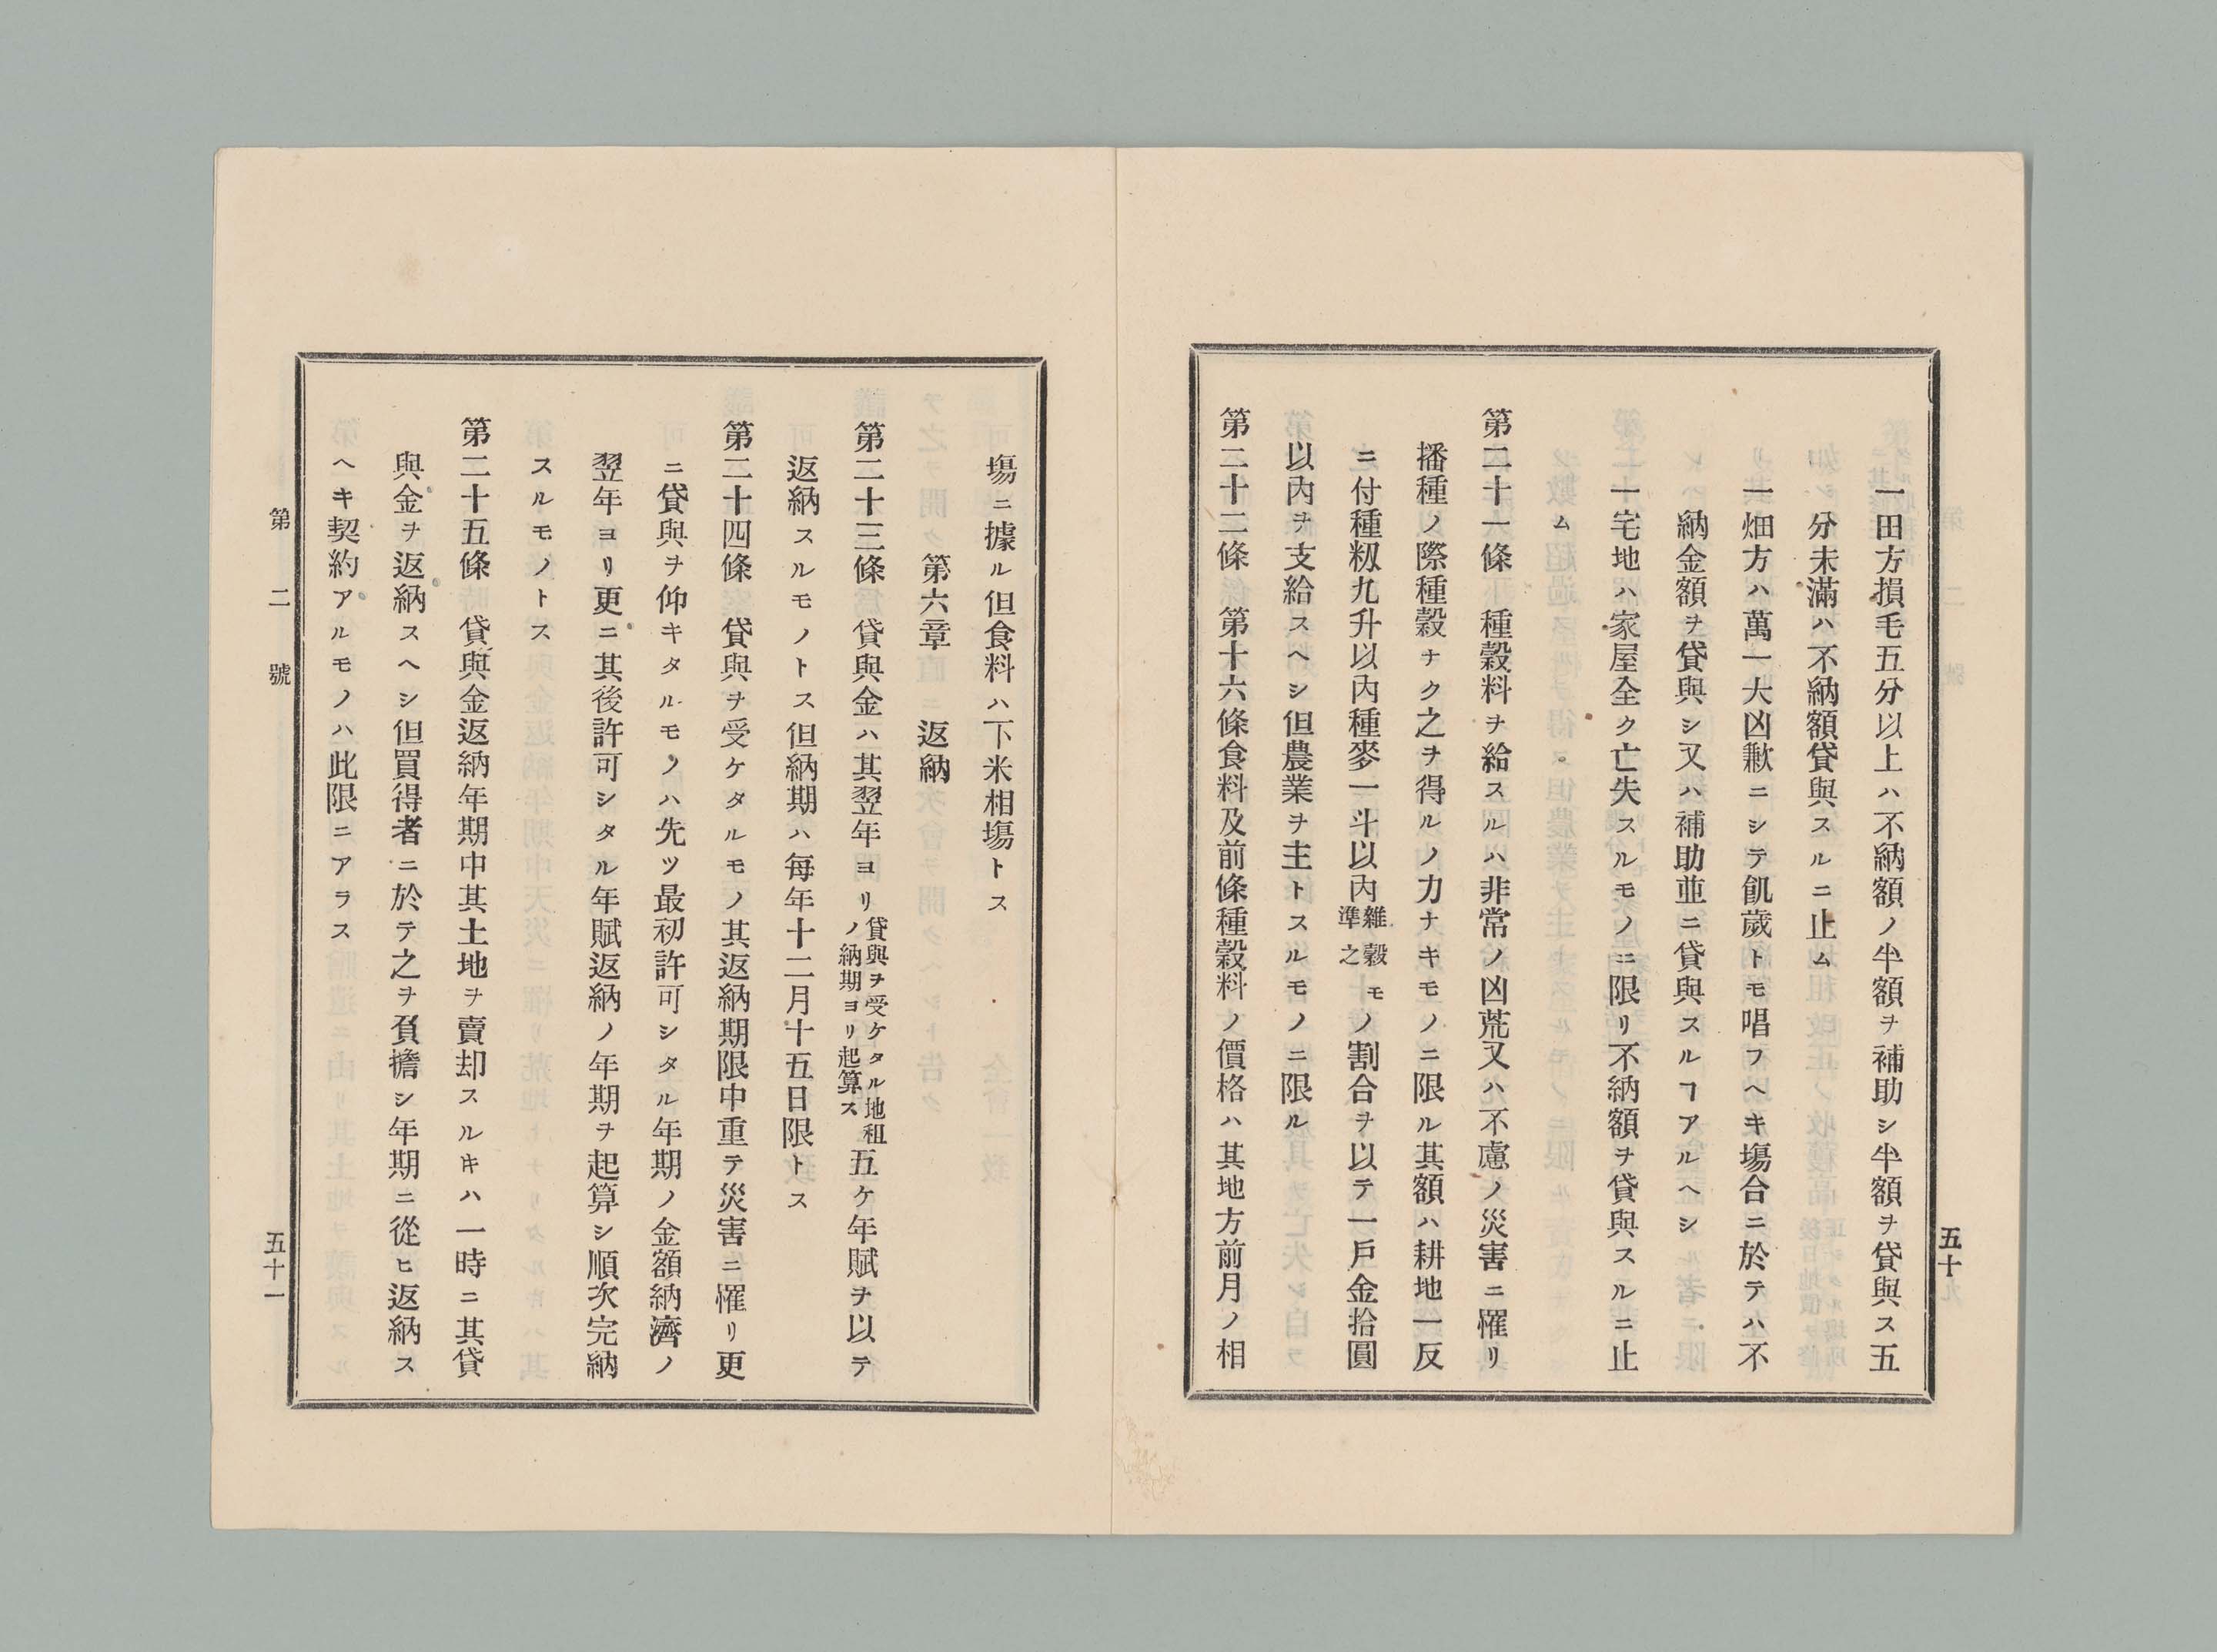 一田方損毛五分以上ハ不納額ノ半額ヲ補助シ半額ヲ貸與ス五
分未滿ハ不納額貸與スルニ止ム
一畑方ハ萬一大凶歉ニシテ飢歲トモ唱フヘキ塲合ニ於テハ不
納金額ヲ貸與シ又ハ補助並ニ貸與スルヿアルヘシ
一宅地ハ家屋全ク亡失スルモノニ限リ不納額ヲ貸與スルニ止
第二十一條　種穀料ヲ給スルハ非常ノ凶荒又ハ不慮ノ災害ニ罹リ
播種ノ際種穀ナク之ヲ得ルノ力ナキモノニ限ル其額ハ耕地一反
ニ付種籾九升以內種麥一斗以內雜穀モ準之ノ割合ヲ以テ一戶金拾圓
以內ヲ支給スヘシ但農業ヲ主トスルモノニ限ル
第二十二條　第十六條食料及前條種穀料ノ價格ハ其地方前月ノ相
五十
塲ニ據ル但食料ハ下米相塲トス
第六章　返納
第二十三條　貸與金ハ其翌年ヨリ貸與ヲ受ケタル地租ノ納期ヨリ起算ス五ケ年賦ヲ以テ
返納スルモノトス但納期ハ每年十二月十五日限トス
第二十四條　貸與ヲ受ケタルモノ其返納期限中重テ災害ニ罹リ更
ニ貸與ヲ仰キタルモノハ先ツ最初許可シタル年期ノ金額納濟ノ
翌年ヨリ更ニ其後許可シタル年賦返納ノ年期ヲ起算シ順次完納
スルモノトス
第二十五條　貸與金返納年期中其土地ヲ賣却スルキハ一時ニ其貸
與金ヲ返納スヘシ但買得者ニ於テ之ヲ負擔シ年期ニ從ヒ返納ス
ヘキ契約アルモノハ此限ニアラス
第二號
五十一